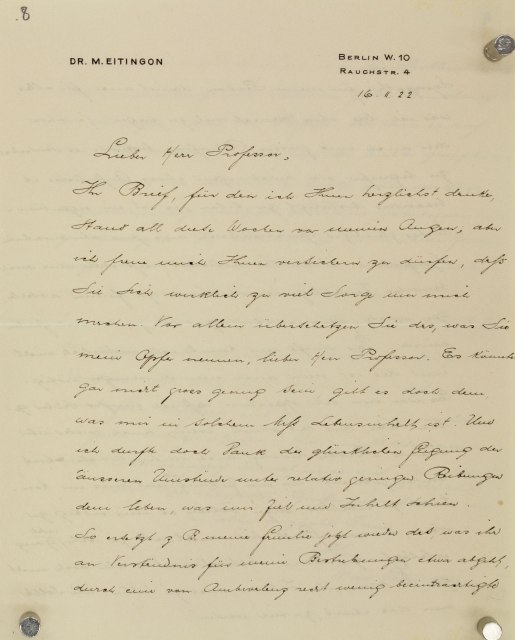 8
DR. M. EITINGON
BERLIN W. 10
RAUCHSTR. 4
16. 11. 22
Lieber Herr Professor,
Ihr Brief, für den ich Ihnen herzlichst danke,
stand all diese Wochen vor meinen Augen; aber
ich freue mich Ihnen versichern zu dürfen, daß
Sie sich wirklich zu viel Sorge um mich
machen. Vor allem überschätzen Sie das, was Sie
mein Opfer nennen, lieber Herr Professor. Es könnte
gar nicht gross genug sein gilt es doch dem
was mir in solchem Lebensinhalt ist. Und
ich durfte doch Dank der glücklichen Fügung der
äusseren Umstände unter relativ geringen Reibungen
dem leben, was mir Ziel und Inhalt schien.
So ersetzt z. B. meine Familie jetzt wieder das was ihr
an Verständnis für meine Bestrebungen etwa abgeht,
durch eine von Ambivalenz recht wenig beeinträchtigte